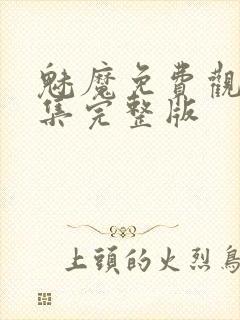 魅魔免費觀
集完整版
上頭的火烈鳥